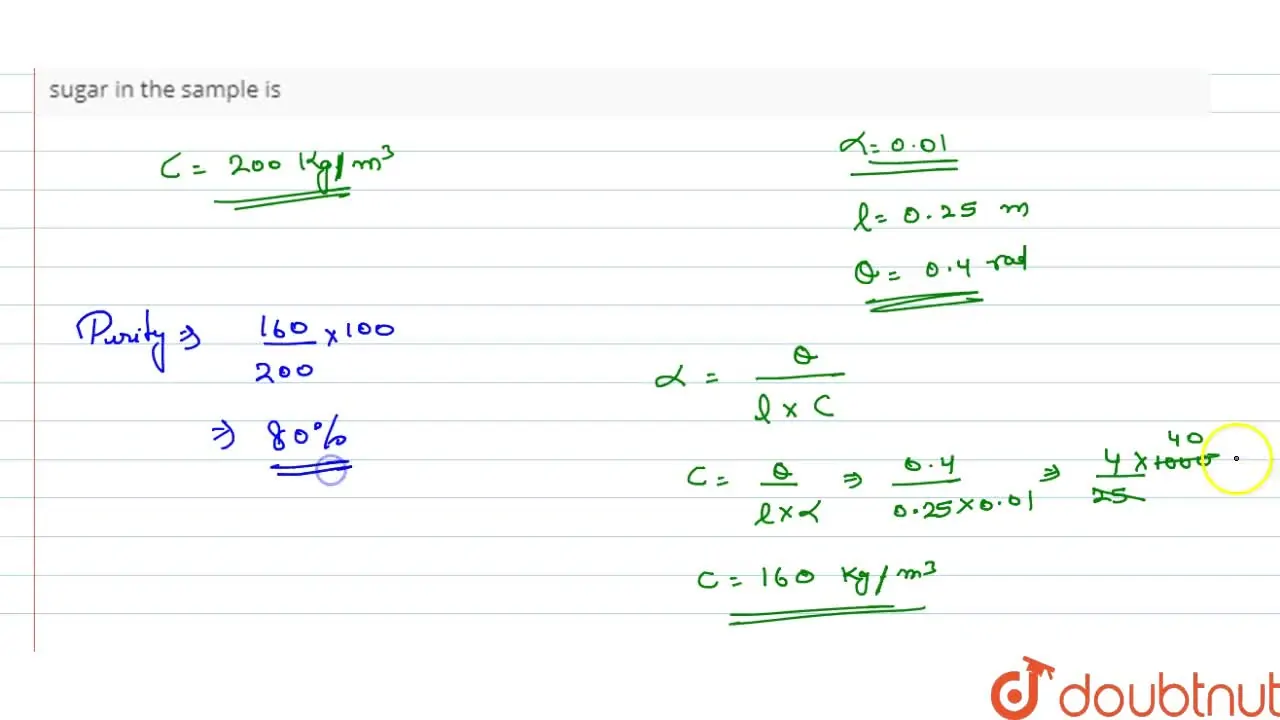 sugar in the sample is
C = 200 Kg/m³
α = 0.01
l = 0.25 m
θ = 0.4 rad
Purity ⇒ 160/200 × 100
⇒ 80%
α = θ/(l × C)
C = θ/(l × α) ⇒ 0.4/(0.25 × 0.01) ⇒ 4 × 1000/25 40
C = 160 Kg/m³
doubtnut